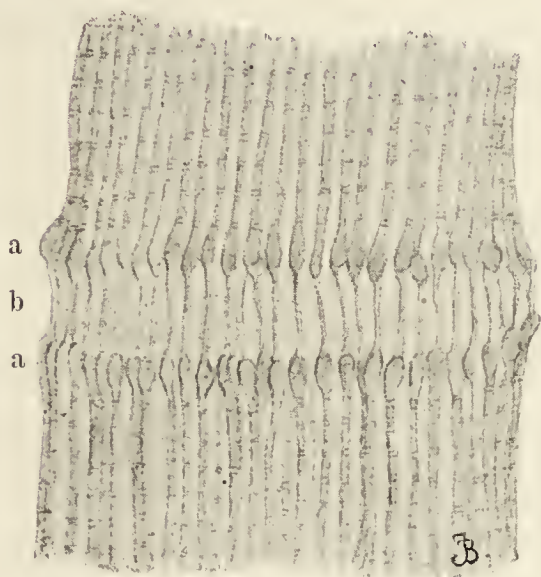 a
b
a
JB